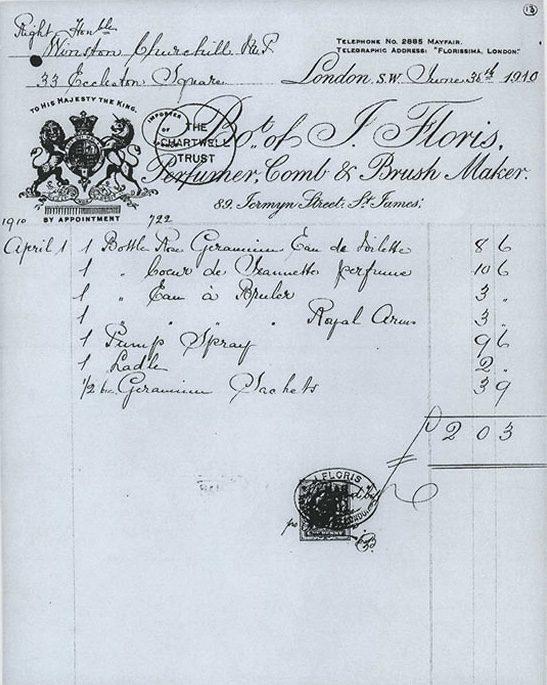 13
Right Honble
Winston Churchill M.P.
33 Eccleston Square
TELEPHONE NO. 2885 MAYFAIR.
TELEGRAPHIC ADDRESS: "FLORISSIMA, LONDON."
London. S.W. June 30th 1910
TO HIS MAJESTY THE KING.
BY APPOINTMENT
IMPORTER OF
THE CHARTWELL TRUST
Bot. of J. Floris,
Perfumer, Comb & Brush Maker.
89, Jermyn Street, St James,
1910 722
April 1 1 Bottle Rose Geranium Eau de Toilette 8 6
1 " Coeur de Jeannette perfume 10 6
1 " Eau à Bruler 3 "
1 " " " Royal Arms 3 "
1 Pump Spray 9 6
1 Ladle 2 "
1/2 Geranium Sachets 3 9
£ 2 0 3
J. FLORIS
LONDON